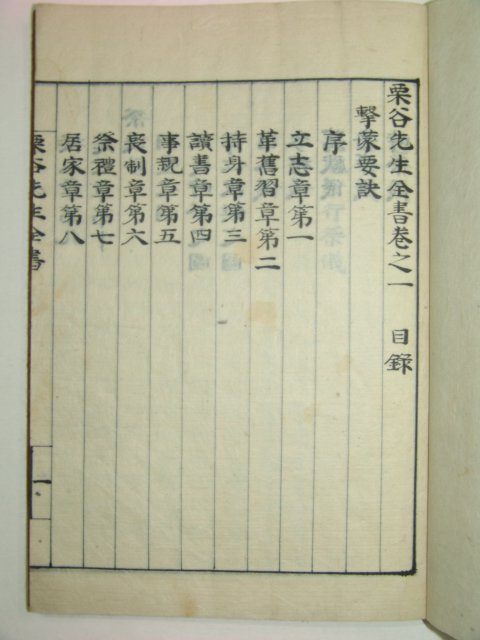 栗谷先生全書卷之一 目錄
擊蒙要訣
序
立志章第一
革舊習章第二
持身章第三
讀書章第四
事親章第五
喪制章第六
祭禮章第七
居家章第八
栗谷先生全書 一